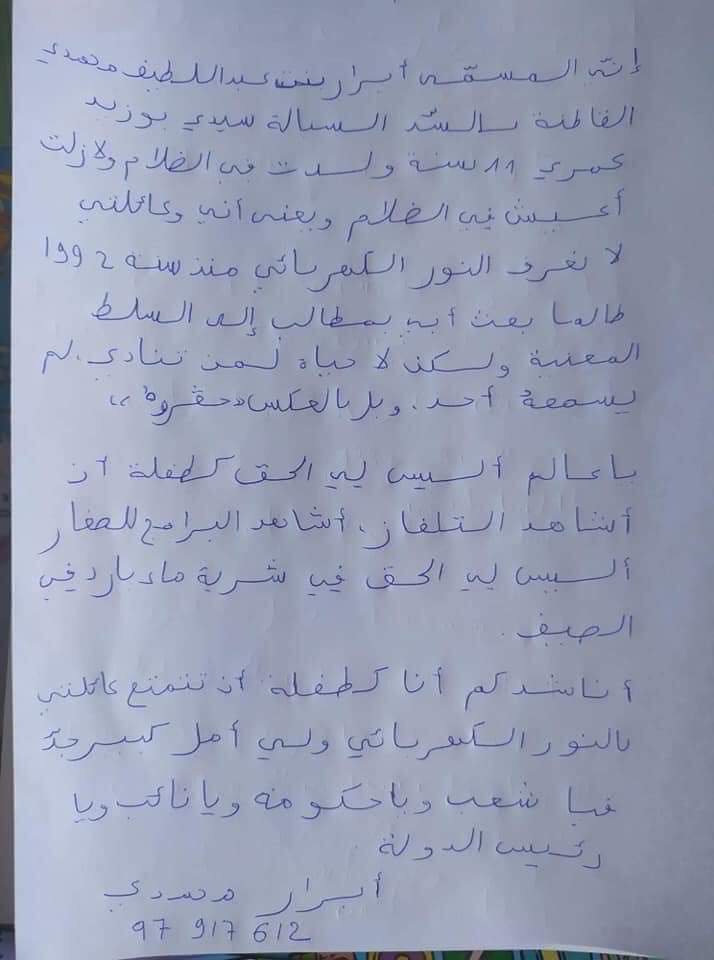 إنّي المسمّى أبرار بنت عبد اللطيف محمدي
القاطنة بالسّد السبالة سيدي بوزيد
عمري 11 سنة ولدت في الظلام ولازلت
أعيش في الظلام وبعنى أني وعائلتي
لا نعرف النور الكهربائي منذ سنة 1992
طالما بعث أبي بمطالب إلى السلط
المعنية ولكن لا حياة لمن تنادي. لم
يسمعه أحد. وبل بالعكس «حقروه»
يا عالم أليس لي الحق كطفلة أن
أشاهد التلفاز، أشاهد البرامج للصغار
أليس لي الحق في شربة ماء بارد في
الصيف.
أناشدكم أنا كطفلة أن تتمتع عائلتي
بالنور الكهربائي ولي أمل كبير جدّ
فيا شعب ويا حكومة ويا نائب ويا
رئيس الدولة.
أبرار محمدي
97 917 612